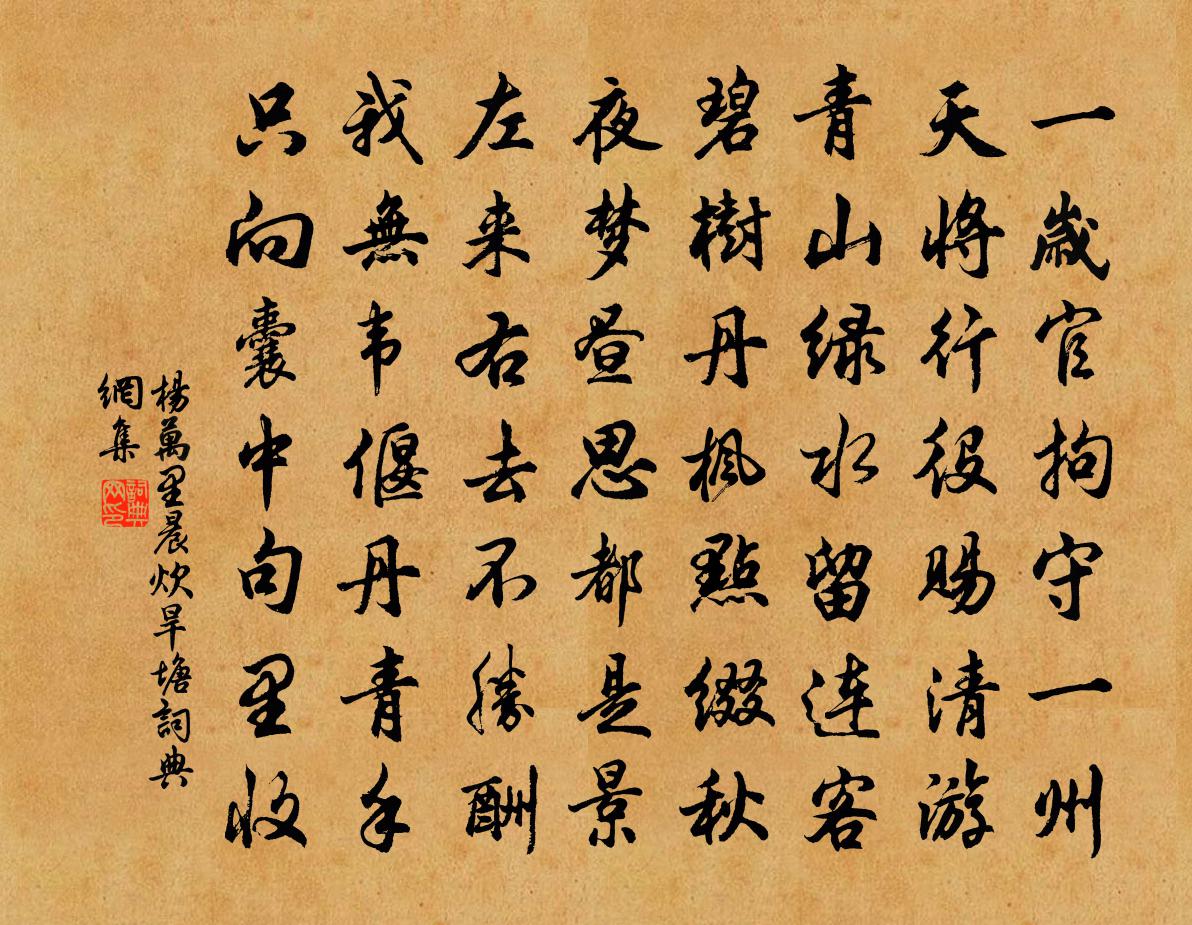 一歲官拘守一州
天將行役賜清游
青山緑水留連客
碧樹丹楓點綴秋
夜梦昼思都是景
左来右去不勝酬
我無韦偃丹青手
只向囊中句里收
楊萬里晨炊旱塘詞典
網集
詞典
网印